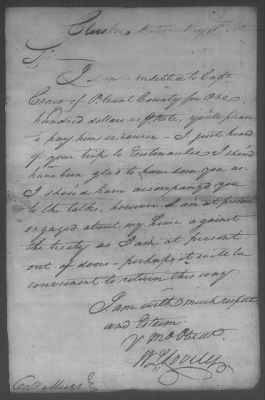 Cherokee Nation May
Sir
I am indebted to Capt
of Blount County for One
hundred dollars as I State, you'll please
pay him on course - I just heard
of your trip to I should
have been glad to have seen you as
I should have accompanyd you
to the talks. however I am at present
engaged about my house against
the treaty as I am at present
out of doors - perhaps it will be
convenient to return this way.
I am with much respect
and Esteem
Y Mo Obedt
Wm L Lovely
Col. Meigs